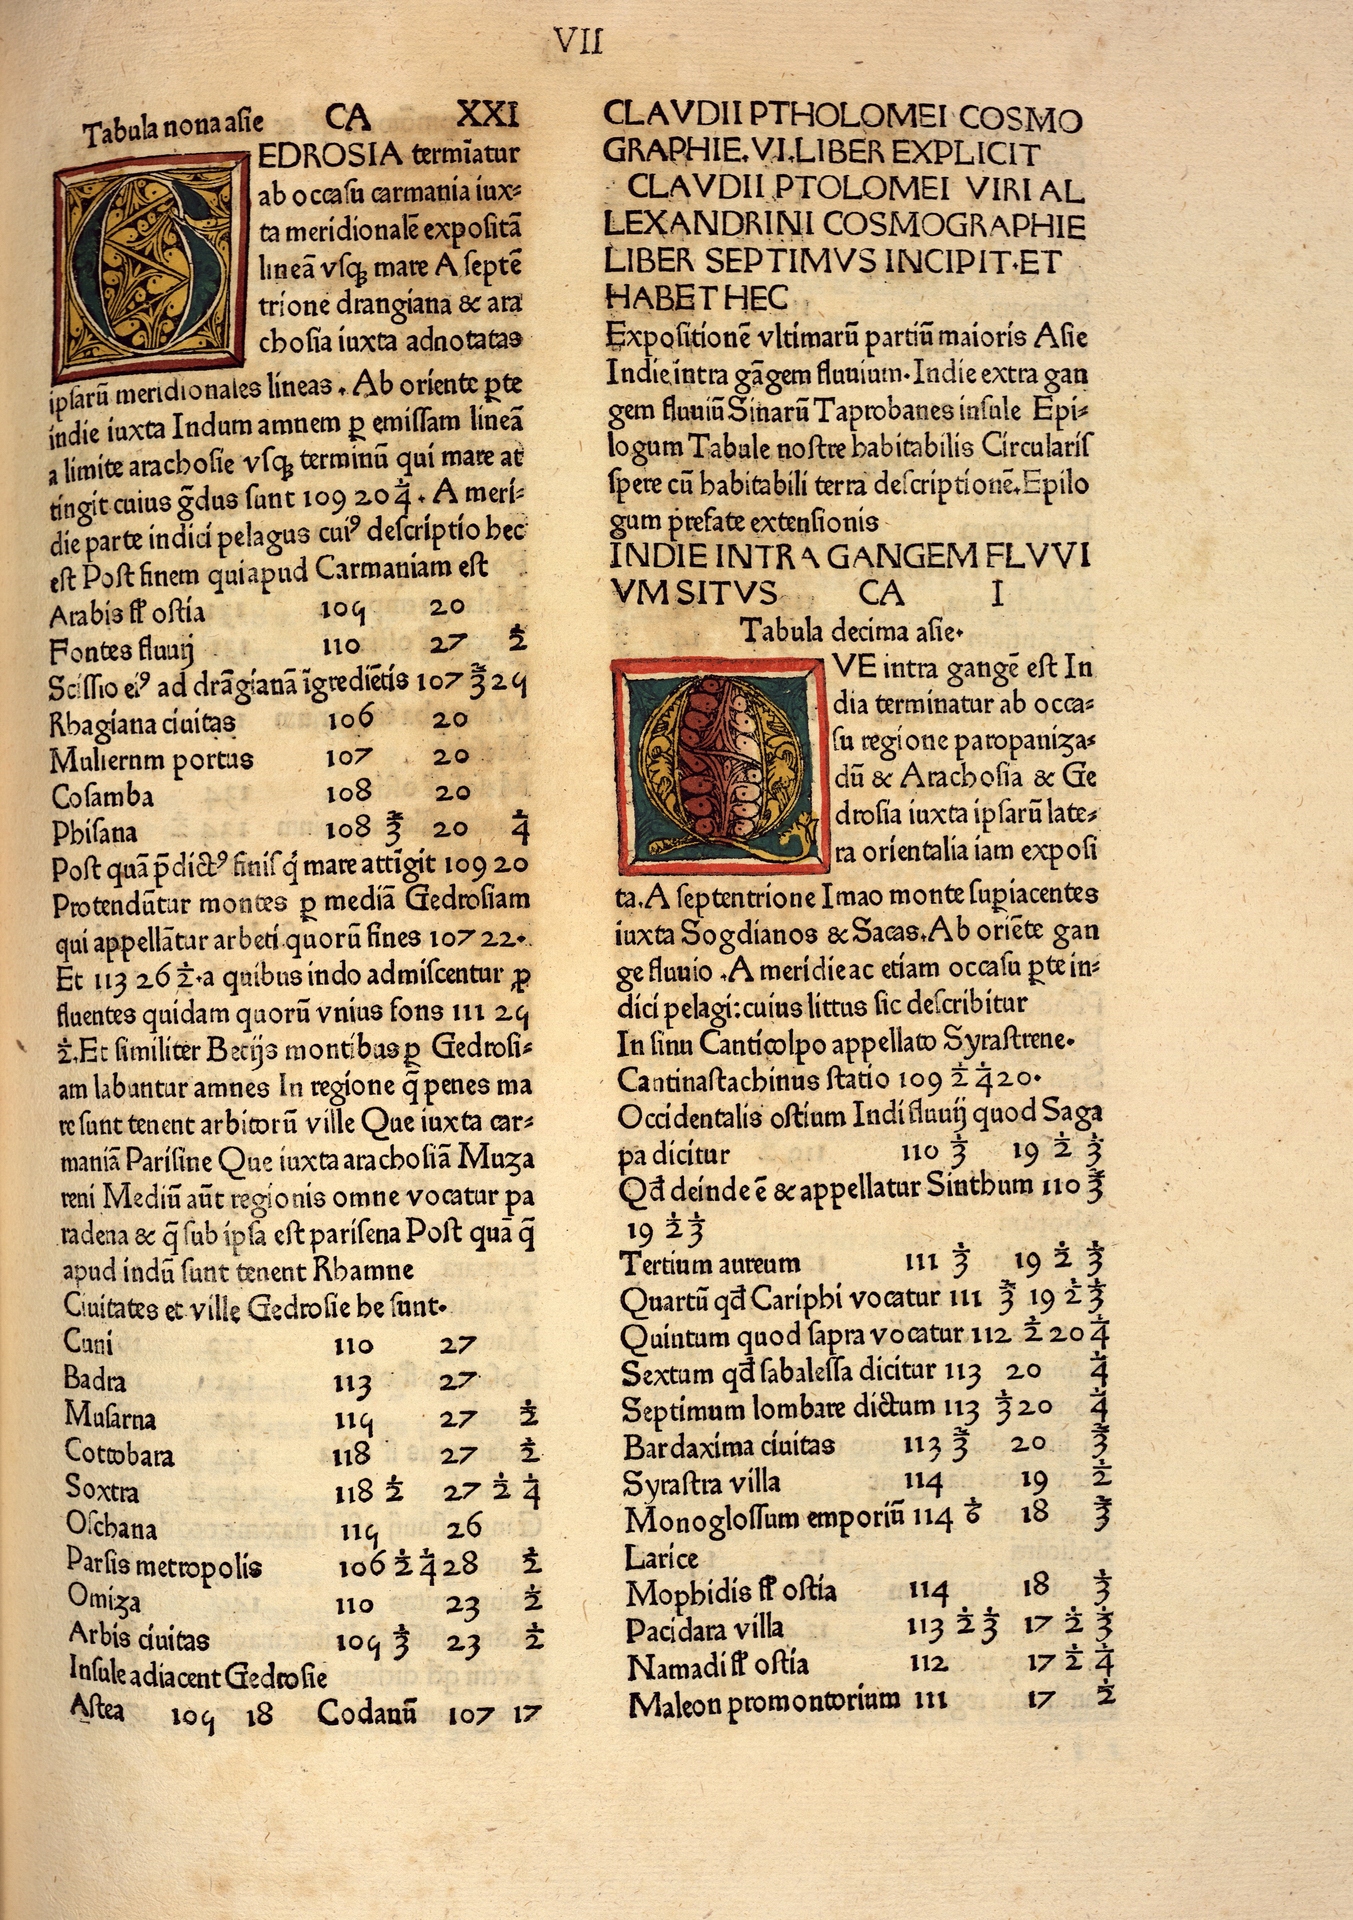 VII
Tabula nona asie CA XXI
GEDROSIA termīatur
ab occasu carmania iux⸗
ta meridionalē expositā
lineā vsq̨ mare A septē
trione drangiana & ara
chosia iuxta adnotatas
ipsarū meridionales lineas . Ab oriente ꝑte
indie iuxta Indum amnem ꝑ emissam lineā
a limite arachosie vsq̨ terminū qui mare at
tingit cuius g̅dus sunt 109 20 ¼ . A meri⸗
die parte indici pelagus cuiꝰ descriptio hec
est Post finem qui apud Carmaniam est
Arabis fl̄ ostia 109 20
Fontes fluuij 110 27 ½
Scissio eiꝰ ad drāgianā īgrediētis 107 ⅔ 29
Rhagiana ciuitas 106 20
Muliernm portus 107 20
Cosamba 108 20
Phisana 108 ⅔ 20 ¼
Post quā p̄dictꝰ finis q́ mare attīgit 109 20
Protendūtur montes ꝑ mediā Gedrosiam
qui appellātur arbeti quorū fines 107 22.
Et 113 26 ½ .a quibus indo admiscentur ꝑ
fluentes quidam quorū vnius fons 111 29
½ .Et similiter Becijs montibus ꝑ Gedrosi⸗
am labuntur amnes In regione q̄ penes ma
re sunt tenent arbitorū ville Que iuxta car⸗
maniā Parisine Que iuxta arachosiā Muza
reni Mediū aūt regionis omne vocatur pa
radena & q̄ sub ipsa est parisena Post quā q̄
apud indū sunt tenent Rhamne
Ciuitates et ville Gedrosie he sunt.
Cuni 110 27
Badra 113 27
Musarna 119 27 ½
Cottobara 118 27 ½
Soxtra 118 ½ 27 ½ ¼
Oschana 119 26
Parsis metropolis 106 ½ ¼ 28 ½
Omiza 110 23 ½
Arbis ciuitas 109 ⅓ 23 ½
Insule adiacent Gedrosie
Astea 109 18 Codanū 107 17
CLAVDII PTHOLOMEI COSMO
GRAPHIE.VI.LIBER EXPLICIT
CLAVDII PTOLOMEI VIRI AL
LEXANDRINI COSMOGRAPHIE
LIBER SEPTIMVS INCIPIT.ET
HABET HEC
Expositionē vltimarū partiū maioris Asie
Indie intra gāgem fluuium. Indie extra gan
gem fluuiū Sinarū Taprobanes insule Epi⸗
logum Tabule nostre habitabilis Circularis
spere cū habitabili terra descriptionē.Epilo
gum prefate extensionis
INDIE INTRA GANGEM FLVVI
VM SITVS CA I
Tabula decima asie.
QVE intra gangē est In
dia terminatur ab occa⸗
su regione paropaniza⸗
dū & Arachosia & Ge
drosia iuxta ipsarū late⸗
ra orientalia iam exposi
ta.A septentrione Imao monte suꝑiacentes
iuxta Sogdianos & Sacas.Ab oriēte gan
ge fluuio .A meridie ac etiam occasu ꝑte in⸗
dici pelagi: cuius littus sic describitur
In sinu Canticolpo appellato Syrastrene.
Cantinastachinus statio 109 ½ ¼ 20.
Occidentalis ostium Indi fluuij quod Saga
pa dicitur 110 ⅓ 19 ½ ⅓
Qd̄ deinde ē & appellatur Sinthum 110 ⅔
19 ½ ⅓
Tertium aureum 111 ⅓ 19 ½ ⅓
Quartū qd̄ Cariphi vocatur 111 ⅔ 19 ½ ⅓
Quintum quod sapra vocatur 112 ½ 20 ¼
Sextum qd̄ sabalessa dicitur 113 20 ¼
Septimum lombare dictum 113 ⅓ 20 ¼
Bardaxima ciuitas 113 ⅔ 20 ⅔
Syrastra villa 114 19 ½
Monoglossum emporiū 114 ⅙ 18 ⅔
Larice
Mophidis fl̄ ostia 114 18 ⅓
Pacidara villa 113 ½ ⅓ 17 ½ ⅓
Namadi fl̄ ostia 112 17 ½ ¼
Maleon promontorium 111 17 ½